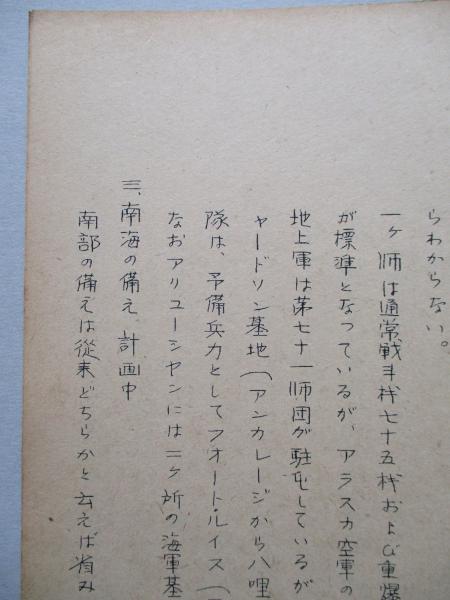 らわからない。
一ヶ師は通常戦斗机七十五机および重爆
が標準となつているが、アラスカ空軍の
地上軍は第七十一師団が駐屯しているが
ャードソン基地(アンカレージから八哩
隊は、予備兵力としてフオート・ルイス(
なおアリューシヤンには二ヶ所の海軍基
三、南海の備え、計画中
南部の備えは従来どちらかと云えば省み